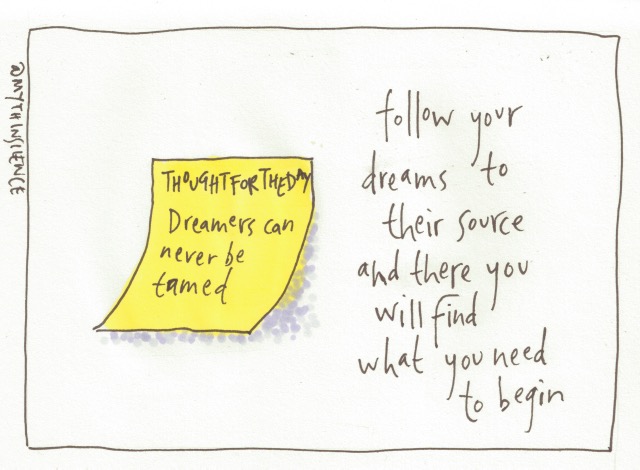 @MYTHINSCIENCE
THOUGHT FOR THE DAY
Dreamers can
never be
tamed
follow your
dreams to
their source
and there you
will find
what you need
to begin